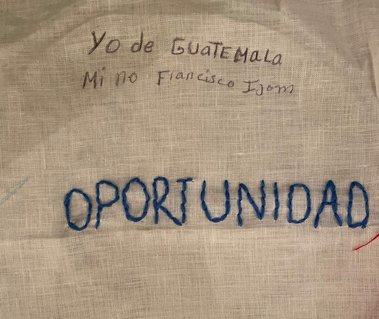 Yo de GUATEMALA
Mi no Francisco
OPORTUNIDAD